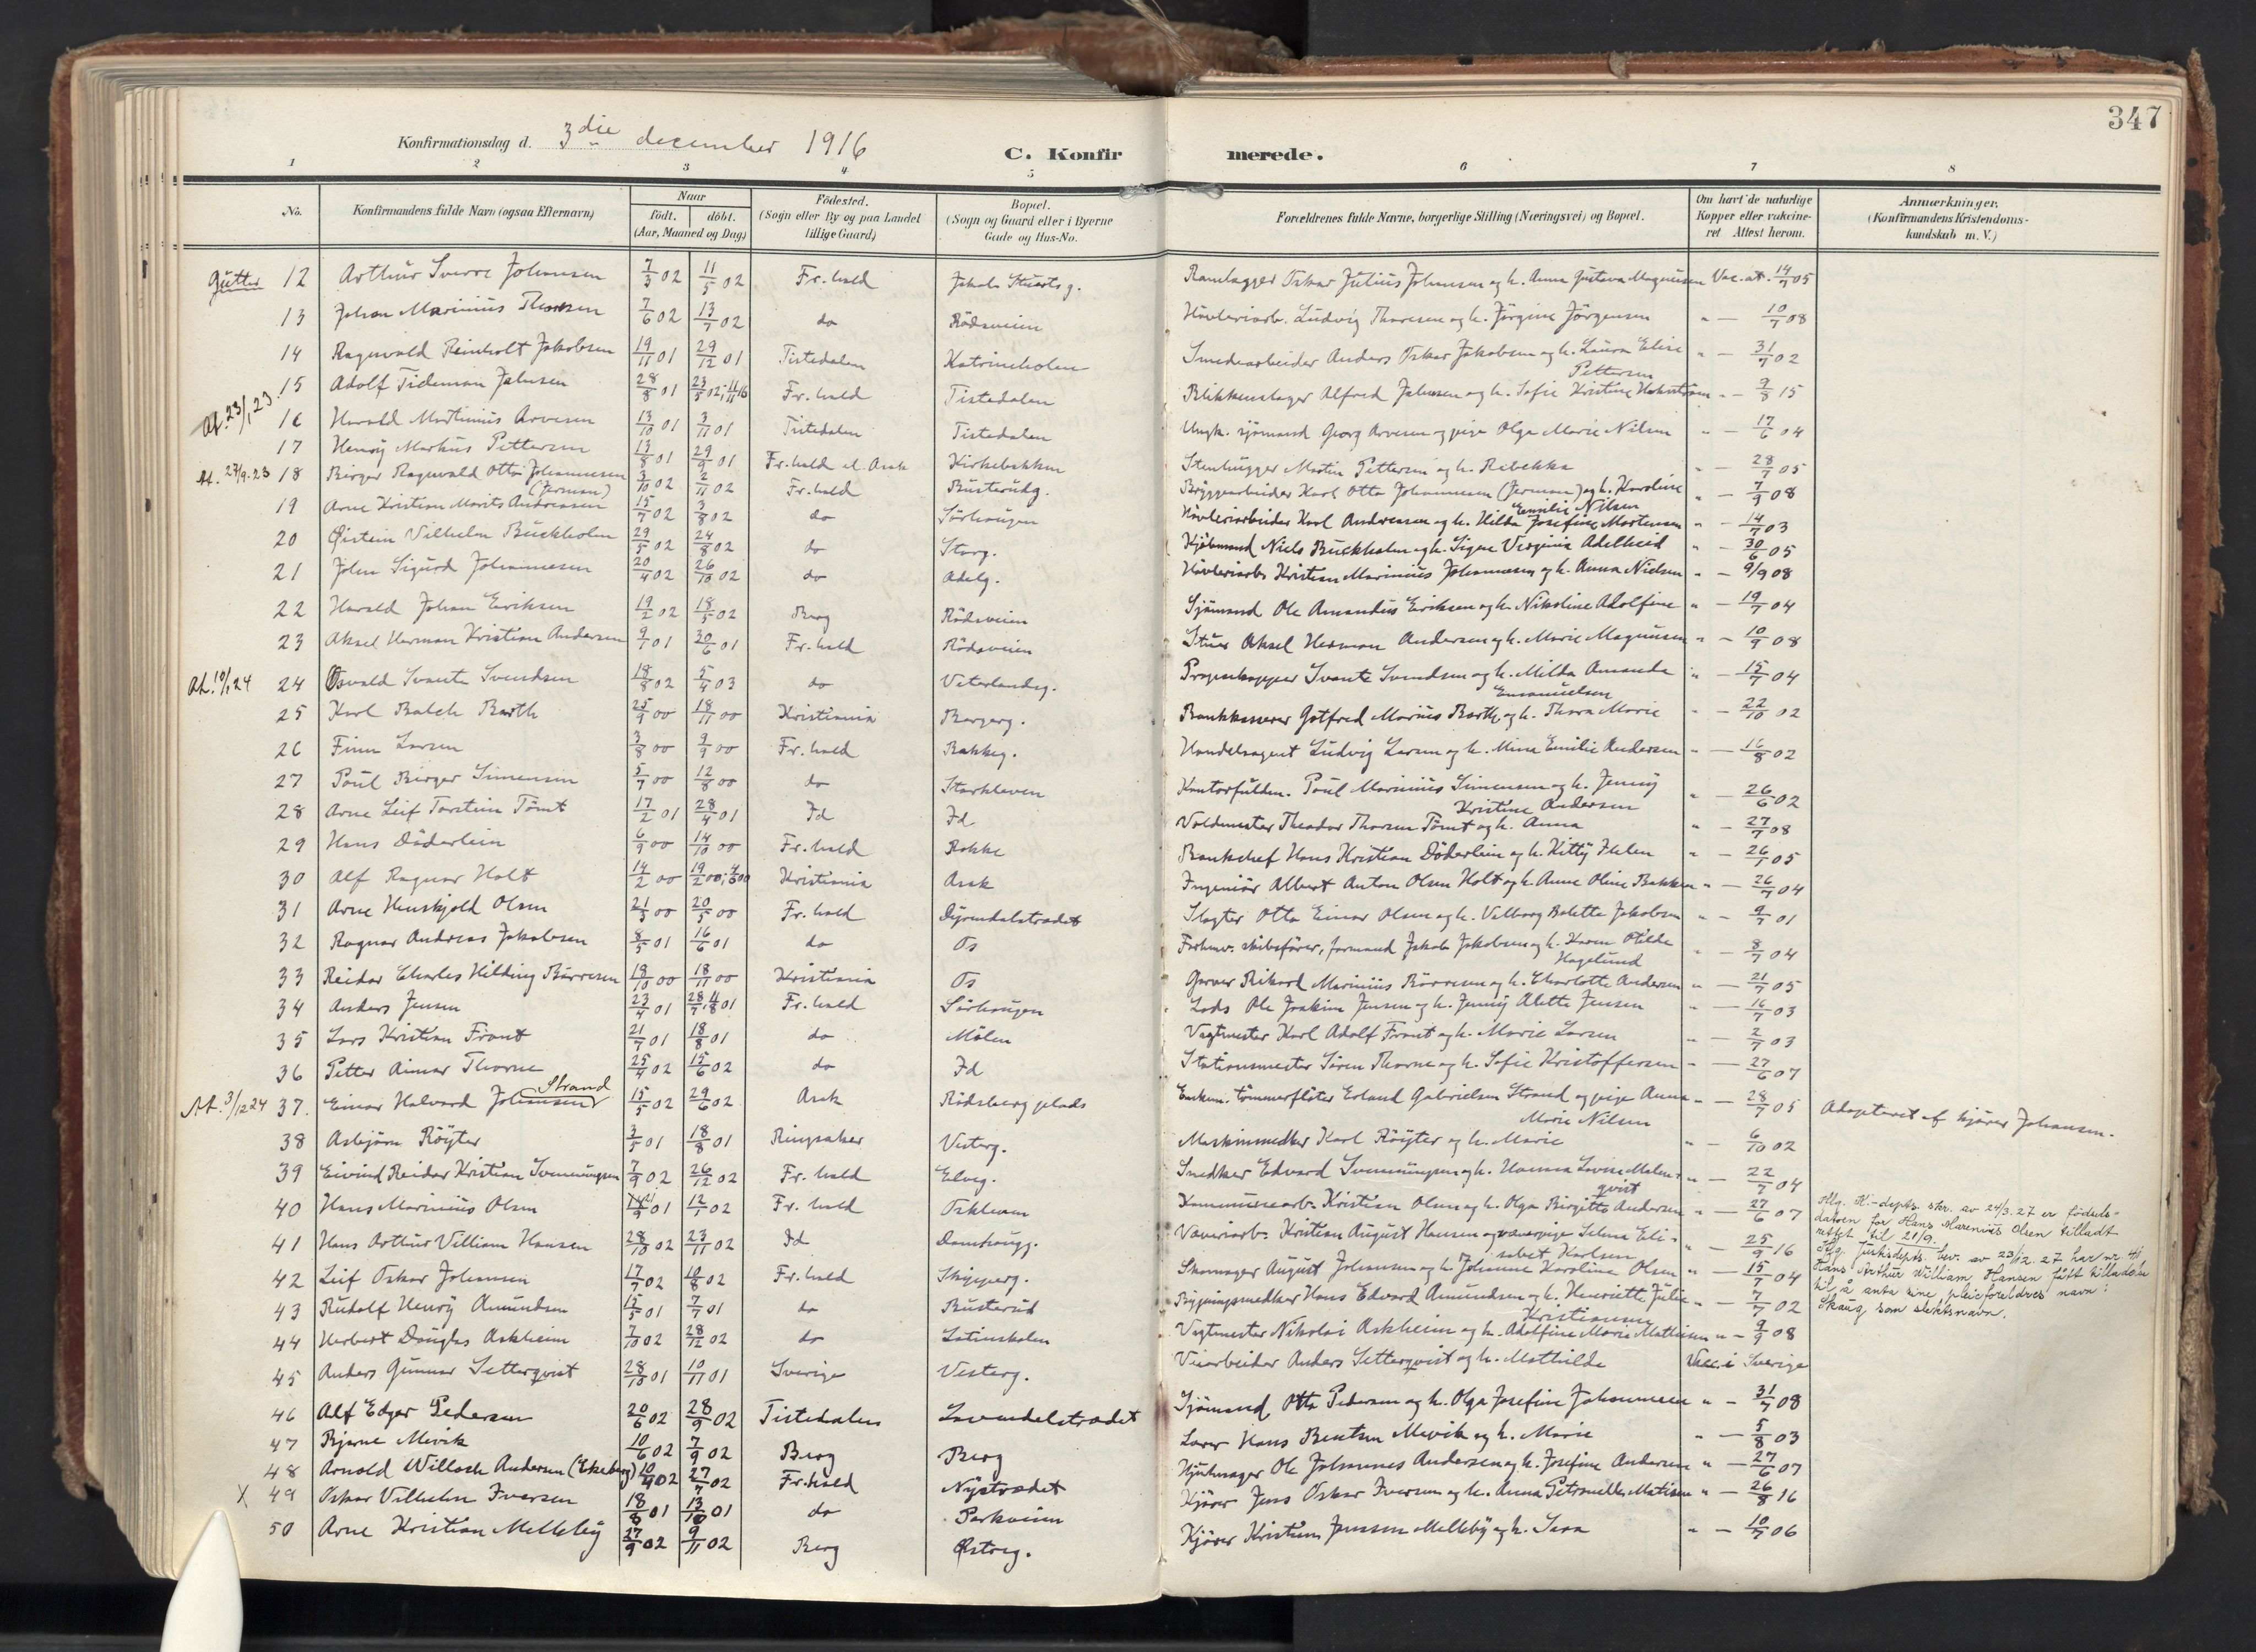 347
Konfirmationsdag d. 3die december 1916
C. Konfirmerede.
1 2 3 4 5 6 7 8
No. Konfirmandens fulde Navn (ogsaa Efternavn) Naar født. døbt. (Aar, Maaned og Dag) Födested. (Sogn eller By og paa Landet tillige Gaard) Bopæl. (Sogn og Gaard eller i Byerne Gade og Hus-No. Forældrenes fulde Navne, borgerlige Stilling (Næringsvei) og Bopæl. Om havt de naturlige Kopper eller vakcineret Attest herom. Anmærkninger. (Konfirmandens Kristendomskundskab m. V.)
Gutter 12 Arthur Sverre Johansen 7/3 02 11/5 02 Fr.hald Jakob Stuartsg. Oskar Julius Johansen og h. Anna Gustava Magnussen Vac. at. 14/7 05
13 Johan Marinius Thoresen 7/6 02 13/7 02 do Rödsveien Høvleriarb. Ludvig Thoresen og h. Jörgine Jörgensen " — 10/7 08
14 Ragnvald Reinholt Jakobsen 19/11 01 29/12 01 Tistedalen Katrineholm Smedearbeider Anders Oskar Jakobsen og h. Laura Elise Pettersen " — 31/7 02
At. 23/1 23. 15 Adolf Tideman Johnsen 28/8 01 23/5 02; 11/11 16 Fr.hald Tistedalen Blikkenslager Alfred Johnsen og h. Sofie Kristine " — 9/8 15
16 Harald Martinius Arvesen 13/10 01 3/11 01 Tistedalen Tistedalen Ungk. sjömand Georg Arvesen og pige Olga Marie Nilsen " — 17/6 04
17 Henry Markus Pettersen 13/8 01 29/9 01 Fr.hald el. Asak Kirkebakken Stenhugger Martin Pettersen og h. Rebekka " — 28/7 05
At. 27/9.23 18 Birger Ragnvald Otto Johannessen (Jerman) 3/10 02 2/11 02 Fr.hald Busterudg. Bryggearbeider Karl Otto Johannessen (Jerman) og h. Karoline Emilie Nilsen " — 7/9 08
19 Arne Kristian Morits Andreassen 15/7 02 3/8 02 do Sörhaugen Høvleriarbeider Karl Andreassen og h. Hilda Josefine Mortensen " — 14/7 03
20 Øistein Vilhelm Buckholm 29/5 02 24/8 02 do Storg. Kjøbmand Niels Buckholm og h. Signe Virginia Adelheid " — 30/6 05
21 John Sigurd Johannesen 20/4 02 26/10 02 do Adelg. Høvleriarb. Kristian Marinius Johannesen og h. Anna Nielsen " — 9/9 08
22 Harald Johan Eriksen 19/2 02 18/5 02 Berg Rödsveien Sjömand Ole Amandus Eriksen og h. Nikoline Adolfine " — 19/7 04
23 Aksel Herman Kristian Andersen 9/1 01 30/6 01 Fr.hald Rödsveien Stuer Aksel Herman Andersen og h. Marie Magnusen " — 10/9 08
At. 10/1 24 24 Osvald Svante Svendsen 18/8 02 5/4 03 do Veterlandsg. Svante Svendsen og h. Milda Amanda Emanuelsen " — 15/7 04
25 Karl Balch Barth 25/9 00 18/11 00 Kristiania Borgerg. Bankkasserer Gotfred Marius Barth og h. Thora Marie " — 22/10 02
26 Finn Larsen 3/8 00 9/9 00 Fr.hald Bakkeg. Handelsagent Ludvig Larsen og h. Mina Emilie Andersen " — 16/8 02
27 Poul Birger Simensen 5/7 00 12/8 00 do Storkleven Kontorfuldm. Poul Marinius Simensen og h. Jenny Kristine Andersen " — 26/6 02
28 Arne Leif Torstein Tömt 17/2 01 28/4 01 Id Id Voldmester Theodor Thorsen Tömt og h. Anna " — 27/7 08
29 Hans Döderlein 6/9 00 14/10 00 Fr.hald Rokke Bankchef Hans Kristian Döderlein og h. Kitty Helen " — 26/1 05
30 Alf Ragnar Holt 14/2 00 19/2 00; 4/6 00 Kristiania Asak Ingeniör Albert Anton Olsen Holt og h. Anne Oline Bakken " — 26/7 04
31 Arne Henskjold Olsen 21/3 00 20/5 00 Fr.hald Dyrendalstrædet Slagter Otto Einar Olsen og h. Valborg Bolette Jakobsen " — 9/7 01
32 Ragnar Andreas Jakobsen 8/5 01 16/6 01 do Os Forhenv. skibsfører, formand Jakob Jakobsen og h. Karen Otilde Hagelund " — 8/7 04
33 Reidar Charles Hilding Börresen 18/10 00 18/11 00 Kristiania Os Garver Rikard Marinius Börresen og h. Charlotte Andersen " — 21/7 05
34 Anders Jensen 23/4 01 28/7; 4/8 01 Fr.hald Sörhaugen Lods Ole Joakim Jensen og h. Jenny Alette Jensen " — 16/7 03
35 Lars Kristian Front 21/7 01 18/8 01 do Mölen Vagtmester Karl Adolf Front og h. Marie Larsen " — 2/7 03
36 Petter Einar Thorne 25/4 02 15/6 02 do Id Stationsmester Sören Thorne og h. Sofie Kristoffersen " — 27/6 07
At. 3/12 24 37. Einar Halvard Johansen Strand 15/5 02 29/6 02 Asak Rödsberg plads Enkem. tömmerflöter Erland Gabrielsen Strand og pige Anna Marie Nilsen " — 28/7 05 Adopteret af kjører Johansen.
38 Asbjörn Röyter 3/5 01 18/8 01 Ringsaker Vesterg. Maskinsnedker Karl Röyter og h. Marie " — 6/10 02
39 Eivind Reidar Kristian Svenningsen 7/9 02 26/12 02 Fr.hald Elveg. Snedker Edvard Svenningsen og h. Hanna Lovise Malmqvist " — 22/7 04
40 Hans Marinius Olsen 9 01 12/1 02 Fr.hald Oskleven Kommunearb. Kristian Olsen og h. Olga Birgitte Andersen " — 27/6 07 Iflg. K.-depts. skr. av 24/3.27 er födselsdatoen for Hans Marenius Olsen tilladt rettet til 21/9.
41 Hans Arthur Villiam Hansen 28/10 02 23/11 02 Id Damhaugg. Væveriarb. Kristian August Hansen og væverpige Selma Elisabet Karlsen " — 25/9 16 Iflg. Justisdepts. bev. av 23/12.27 har nr 41 Hans Arthur William Hansen fått tilladelse til å anta sine pleieforeldres navn: Skaug som slektsnavn.
42 Leif Oskar Johansen 17/7 02 10/8 02 Fr.hald Skipperg. Skomager August Johansen og h. Johanne Karoline Olsen " — 15/7 04
43 Rudolf Henry Amundsen 15/5 01 7/7 01 do Busterud Bygningssnedker Hans Edvard Amundsen og h. Henriette Julie Kristiansen " — 7/7 02
44 Herbert Douglas Askheim 7/10 02 28/12 02 do Latinskolen Vagtmester Nikolai Askheim og h. Adolfine Marie Mathisen " — 9/9 08
45 Anders Gunnar Setterqvist 28/10 01 10/11 01 Sverige Vesterg. Veiarbeider Anders Setterqvist og h. Mathilde Vacc. i Sverige
46 Alf Edgar Pedersen 20/6 02 28/9 02 Tistedalen Lavendelstrædet Sjömand Otto Pedersen og h. Olga Josefine Johannesen " — 31/7 08
47 Bjarne Mevik 10/6 02 7/9 02 Berg Berg Lærer Hans Bentsen Mevik og h. Marie " — 5/8 03
48 Arnold Willoch Andersen (Ekeberg) 10/4 02 27/7 02 Fr.hald Nystrædet Hjulmager Ole Johannes Andersen og h. Josefine Andersen " — 27/6 07
X 49 Oskar Vilhelm Iversen 18/8 01 13/10 01 do Parkveien Kjører Jens Oskar Iversen og h. Anna Petronelle Matisen " — 26/8 16
50 Arne Kristian Melleby 27/9 02 9/11 02 Berg Østreg. Kjører Kristian Jensen Melleby og h. Sara " — 10/7 06